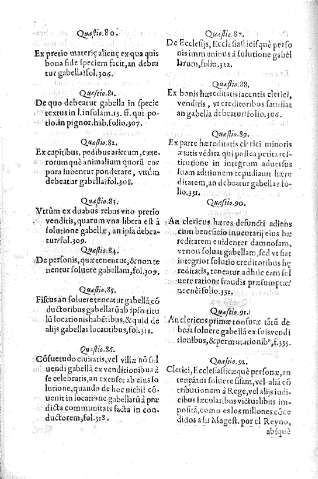 Quæstio.80.
Ex pretio materię alienę ex qua quis
bona fide speciem facit, an debea
tur gabella: fol.306.
Quæstio.81.
De quo debeatur gabella in specie
textus in l. insulam.13. ff. qui po
tio.in pignor.hab.folio.307.
Quæstio.82.
Ex capitibus, pedibus alectum, cæte
rorum què animalium quorũ cor
pora iubentur ponderare, vtrùm
debeatur gabella: fol.308.
Quæstio.83.
Vtrũm ex duabus rebus vno pretio
venditis, quarum vna libera est à
solutione gabellæ, an ipsa debea-
tur: fol.309.
Quæstio.84.
De personis, quæ tenentur, & non te
nentur soluere gabellam, fol.309.
Quæstio.85.
Fiscus an soluere teneatur gabellã cõ
ductoribus gabellarũ ab ipso titu
lũ locationis habẽtibus, & quid de
alijs gabellas locantibus, fol.311.
Quæstio.86.
Cõsuetudo ciuitatis, vel villæ nõ sol
uendi gabellã ex venditionibus à
se celebratis, an excuset ab eius so
lutione, quando de hoc nichil cõ
uenit in locatione gabellarũ à præ
dicta communitate facta in con-
ductorem, fol.318.
Quæstio.87.
De Ecclesijs, Ecclesiasticisquè perso
nis immunibus à solutione gabel
larum, fol.312.
Quæstio.88.
Ex bonis hæreditatis iacentis clerici,
venditis, vt creditoribus satisfiat
an gabella debeatur: fo.330.
Quæstio.89.
Ex parte hæreditatis clerici minoris
ætatis vẽdita qui postea petita re-
stitutione in integrum aduersus
suam aditionem repudiauit hære
ditatem, an debeatur gabella: fo
lio.331.
Quæstio.90.
An clericus hæres defuncti adiens
cum beneficio inuentarij eius hæ
reditatem euidenter damnosam,
vt non soluat gabellam, sed vt fiat
integrior solutio creditoribus hę
reditatis, teneatur adhuc eam sol
uere ratione fraudis præsumptæ:
necnè: folio.331.
Quæstio.91.
An clericus primæ tonsuræ tãtũ de
beat soluere gabellã ex suis vendi
tionibus, & permutationib⁹, f.335.
Quæstio.92.
Clerici, Ecclesiasticæquè personæ, an
teneantur soluere sisam, vel aliã cõ
tributionem à Rege, vel alijs iudi-
cibus sæcularibus victualibus im-
positã, como es los millones cõce
didos a su Magest. por el Reyno,
absquè